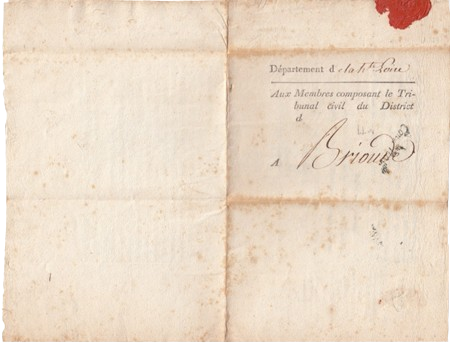 Département d e la Hte Loire
Aux Membres composant le Tri-
bunal civil du District
d
A Brioude